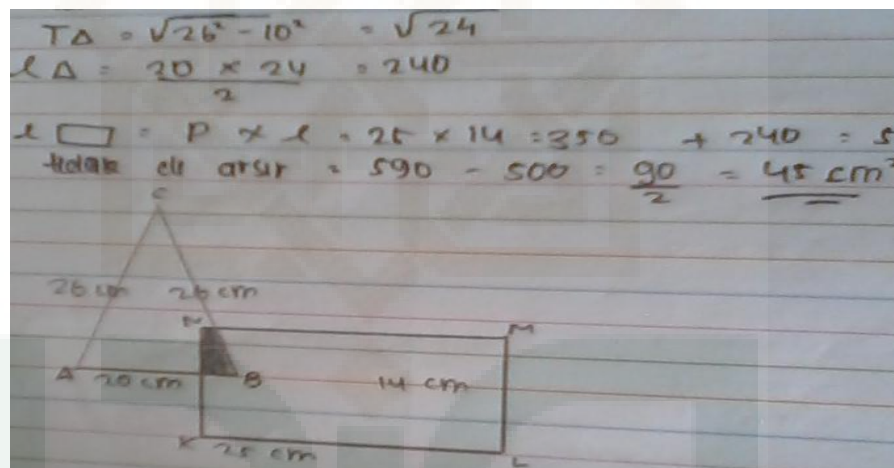 TΔ = √26² - 10² = √24
LΔ = 20 × 24 / 2 = 240
L ▭ = P × l = 25 × 14 = 350 + 240 = 5
tidak di arsir = 590 - 500 = 90 / 2 = 45 cm²
C
26 cm 26 cm
N M
A 20 cm B 14 cm
K 25 cm L